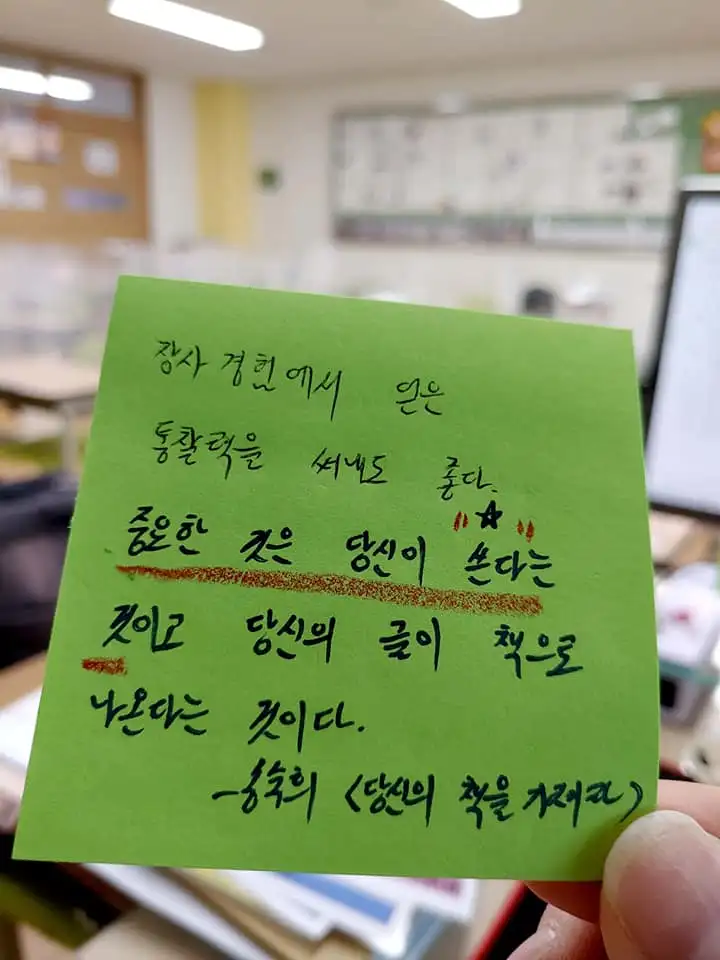 장사 경험에서 얻은
통찰력을 써내도 좋다.
"☆"
중요한 것은 당신이 쓴다는
것이고 당신의 글이 책으로
나온다는 것이다.
-송숙희 <당신의 책을 가져라>